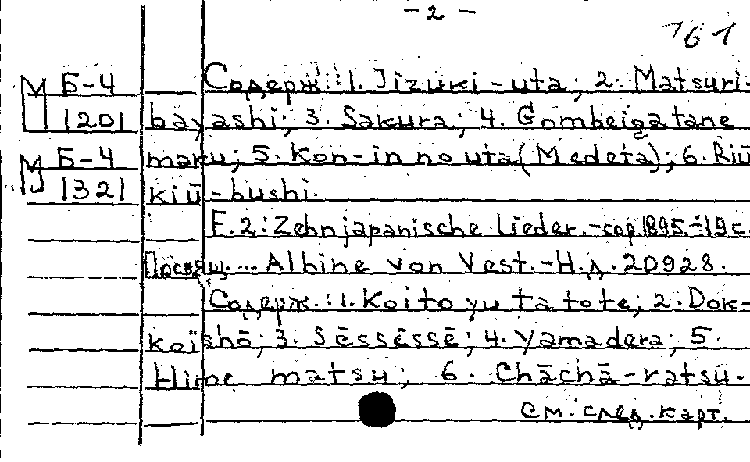 - 2 -
161
Б-4 Содерж.: 1. Jizuki-uta; 2. Matsuri-
1201 bayashi; 3. Sakura; 4. Gombeiga tane
Б-4 maku; 5. Kon-in no uta (Medeta); 6. Riū
1321 kiū-bushi.
F. 2: Zehn japanische Lieder.-cop. 1895.-19 с.
Посвящ... Albine von Vest.-Н.д. 20928.
Содерж.: 1. Koito yu ta tote; 2. Dok-
koïshō; 3. Sēssēssē; 4. Yamadera; 5.
Hime matsu; 6. Chāchā-ratsu-
см. след. карт.